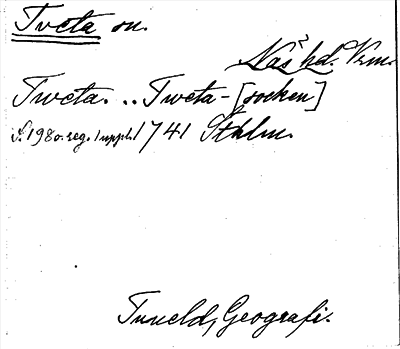 Tveta sn.
Näs hd. Vrm.
Tweta. .. Tweta-[socken]
S. 198 o. reg. 1 uppl. 1741 Sthlm.
Tuneld, Geografi.